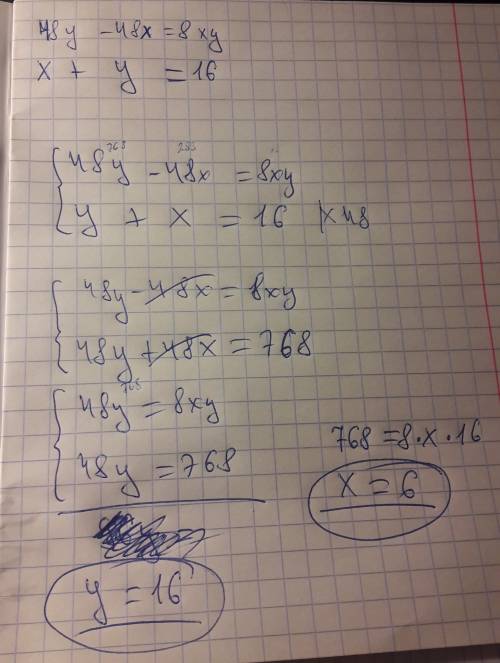 48y - 48x = 8xy
x + y = 16
48y - 48x = 8xy
y + x = 16 |×48
48y - 48x = 8xy
48y + 48x = 768
48y = 8xy
48y = 768
768 = 8·x·16
x = 6
y = 16